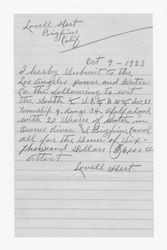 Lovell Hert
Bigpine
Calif
Oct 9 - 1923
I hereby Submit to the
Los Angeles Power and Water
Co the following to wit
The South ½ S.E ¼ N.W ¼ Sec 21
Township 9 Range 34 
with 20 Shares of Water in
Owens River & Bigpine Canal
all for the Sum of Six
Thousand Dollars $6000.00
attest
Lovell Hert